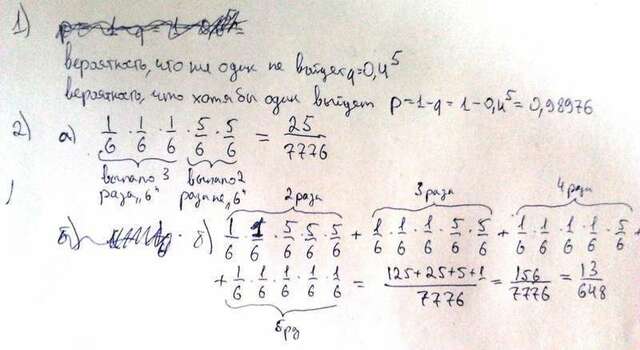 1)
вероятность, что ни один не выйдет q=0,4⁵
вероятность, что хотя бы один выйдет p=1-q=1-0,4⁵=0,98976
2) а) 1/6 · 1/6 · 1/6 · 5/6 · 5/6 = 25/7776
выпало 3 раза „6“ выпало 2 раза не „6“
2 раза 3 раза 4 раза
б) б) 1/6 · 1/6 · 5/6 · 5/6 · 5/6 + 1/6 · 1/6 · 1/6 · 5/6 · 5/6 + 1/6 · 1/6 · 1/6 · 1/6 · 5/6 +
+ 1/6 · 1/6 · 1/6 · 1/6 · 1/6 = 125+25+5+1/7776 = 156/7776 = 13/648
5 р